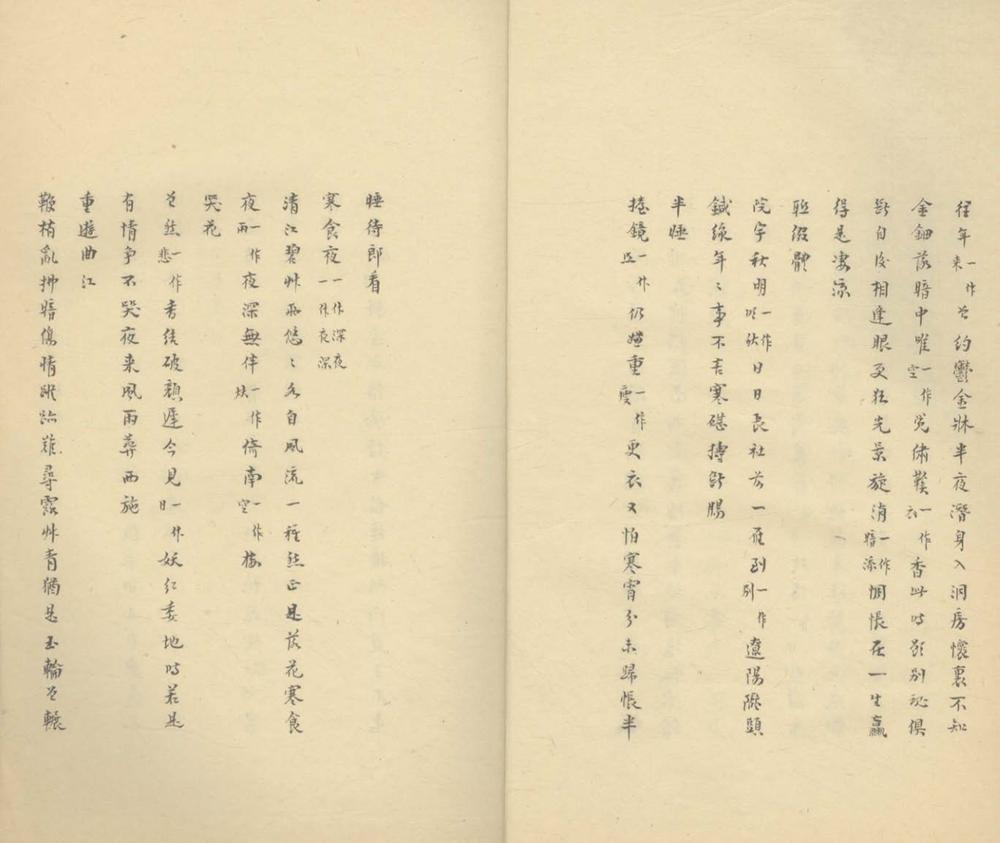 徃年一作来曾約鬱金牀半夜潛身入洞房懷裏不知
金鈿落暗中唯一作空覺繡鞋一作衣香此時欲别魂俱
斷自後相逢眼更狂光景旋消一作暗添惆悵在一生贏
得是凄凉
聯綴體
院宇秋明一作秋日日長社前一雁到一作别遼陽隴頭
鍼線年〻事不喜寒碪擣斷腸
半睡
擡鏡一作仍嫌重一作更衣又怕寒宵分未歸帳半
睡待郎看
寒食夜一作深夜一作夜深
清江碧草兩悠〻各自風流一種愁正是落花寒食
夜一作雨夜深無伴一作倚南一作空樓
哭花
曾愁一作悲香結破顔遲今見一作日妖红委地時若是
有情争不哭夜来風雨葬西施
重遊曲江
鞭梢亂拂暗傷情蹤跡難尋露草青猶是玉輪曾輾